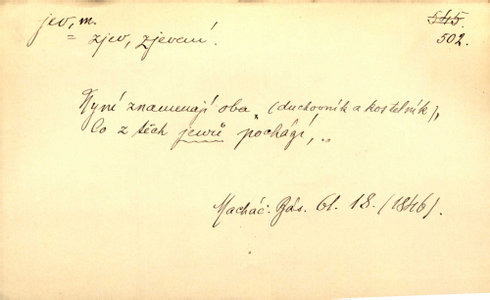 jev, m. 545.
= zjev, zjevení. 502.
Nyné znamenají oba (duchovník a kostelník),
Co z těch jewů pocházý, ..
Macháč. Bás. 61. 18. (1846).